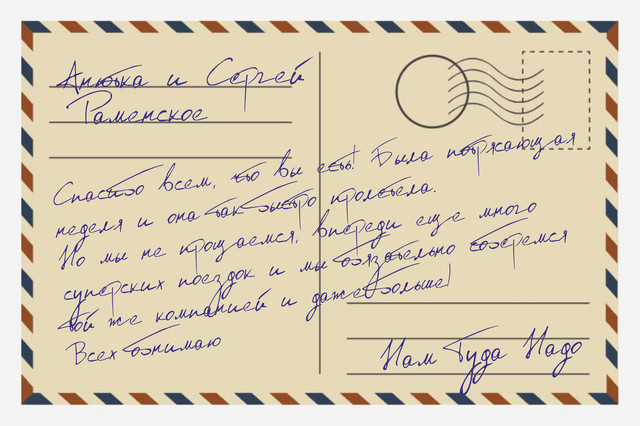 Анютка и Сергей
Раменское
Спасибо всем, что вы есть! Была потрясающая
неделя и она так быстро пролетела.
Но мы не прощаемся, впереди еще много
суперских поездок и мы обязательно соберемся
той же компанией и даже больше!
Всех обнимаю
Нам Туда Надо